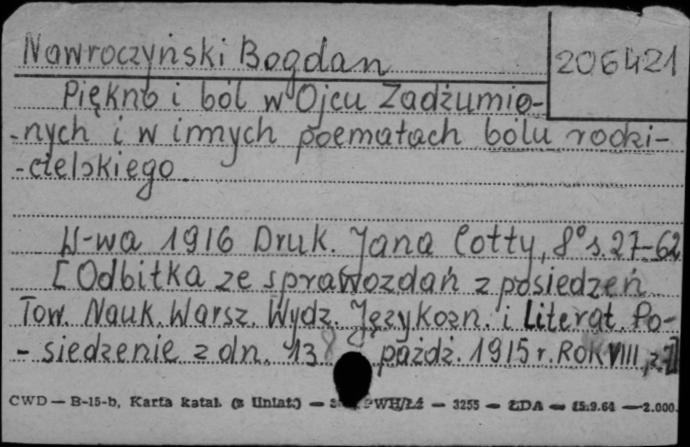 Nawroczyński Bogdan
206421
Piękno i ból w Ojcu Zadżumio-
-nych i w innych poematach bólu rodzi-
-cielskiego.
W-wa 1916 Druk. Jana Cotty, 8° s. 27-62
[Odbitka ze sprawozdań z posiedzeń
Tow. Nauk. Warsz. Wydz. Językozn. i Literat. Po-
- siedzenie z dn. 13 paźdz. 1915 r. Rok VIII, z.7]
CWD — B-15-b, Karta katal. (z Uniat.) — PWH/Łź — 3255 — ŁDA — 15.9.64 — 2.000.